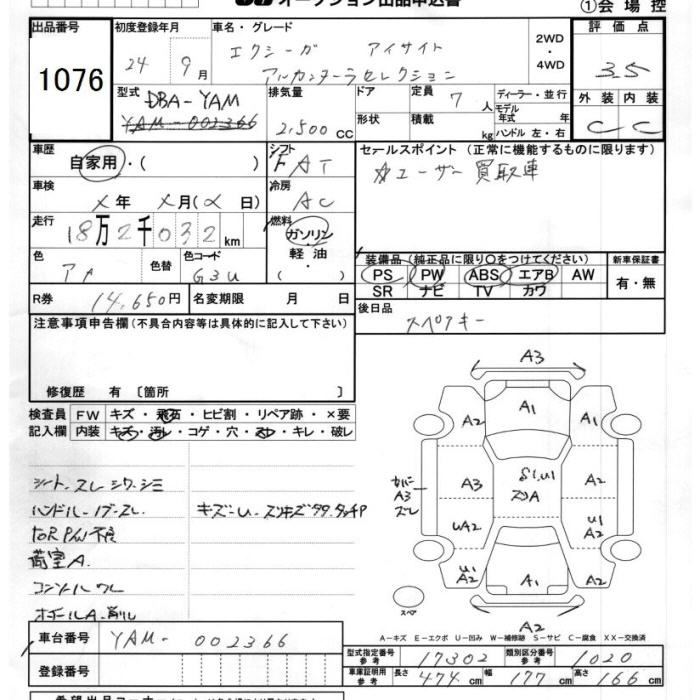 オークション出品申込書
①会場控
出品番号 初度登録年月 車名・グレード 評価点
1076
24年 9月
エクシーガ アイサイト
アルカンターラセレクション
2WD
・
4WD
3.5
型式 排気量 ドア 定員 ディーラー・並行 外装 内装
DBA-YAM
YAM-002366
2,500 CC
7人
モデル年式 年
形状 積載 kg ハンドル 左・右
C C
車歴 シフト セールスポイント (正常に機能するものに限ります)
自家用・( )
FAT
ユーザー買取車
車検 冷房
× 年 × 月( × 日)
AC
走行 燃料
18万2千032km
ガソリン・
軽油・
色 色替 色コード
G3U
装備品 (純正品に限り○をつけてください) 新車保証書
PS PW ABS エアB AW
SR ナビ TV カワ
有・無
R券 14,650円 名変期限 月 日
後日品
スペアキー
注意事項申告欄(不具合内容等は具体的に記入して下さい)
修復歴 有 〔箇所 〕
検査員 FW キズ・飛石・ヒビ割・リペア跡・×要
記入欄 内装 キズ・汚レ・コゲ・穴・スレ・キレ・破レ
シート.スレ シワ.シミ
ハンドル-ノブ-スレ
キズ-U-スリキズ
P/W不良
荷室A.
A3
A1
A2 A2
カバー
A3
スレ
A3
S1.U1
A
A2
UA2
U1
A2
U1
A2
A1
A2
スペア
A2
A-キズ E-エクボ U-凹み W-補修跡 S-サビ C-腐食 XX-交換済
車台番号 YAM- 002366
登録番号
型式指定番号 参考 17302 類別区分番号 参考 1020
車庫証明用 参考 長さ 474 cm 幅 177 cm 高さ 166 cm